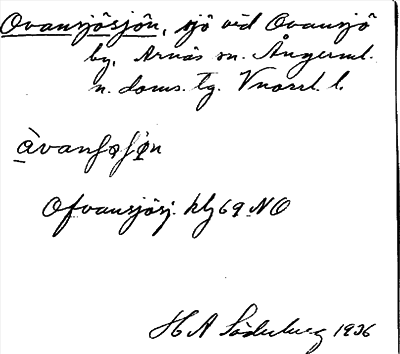 Ovansjösjön, sjö vid Ovansjö
by, Arnäs sn. Ångerml.
n. doms. tg. Vnorrl. l.
àvanʃøʃøn
Ofvansjösj. hlj 69 NO
H A Söderberg 1936